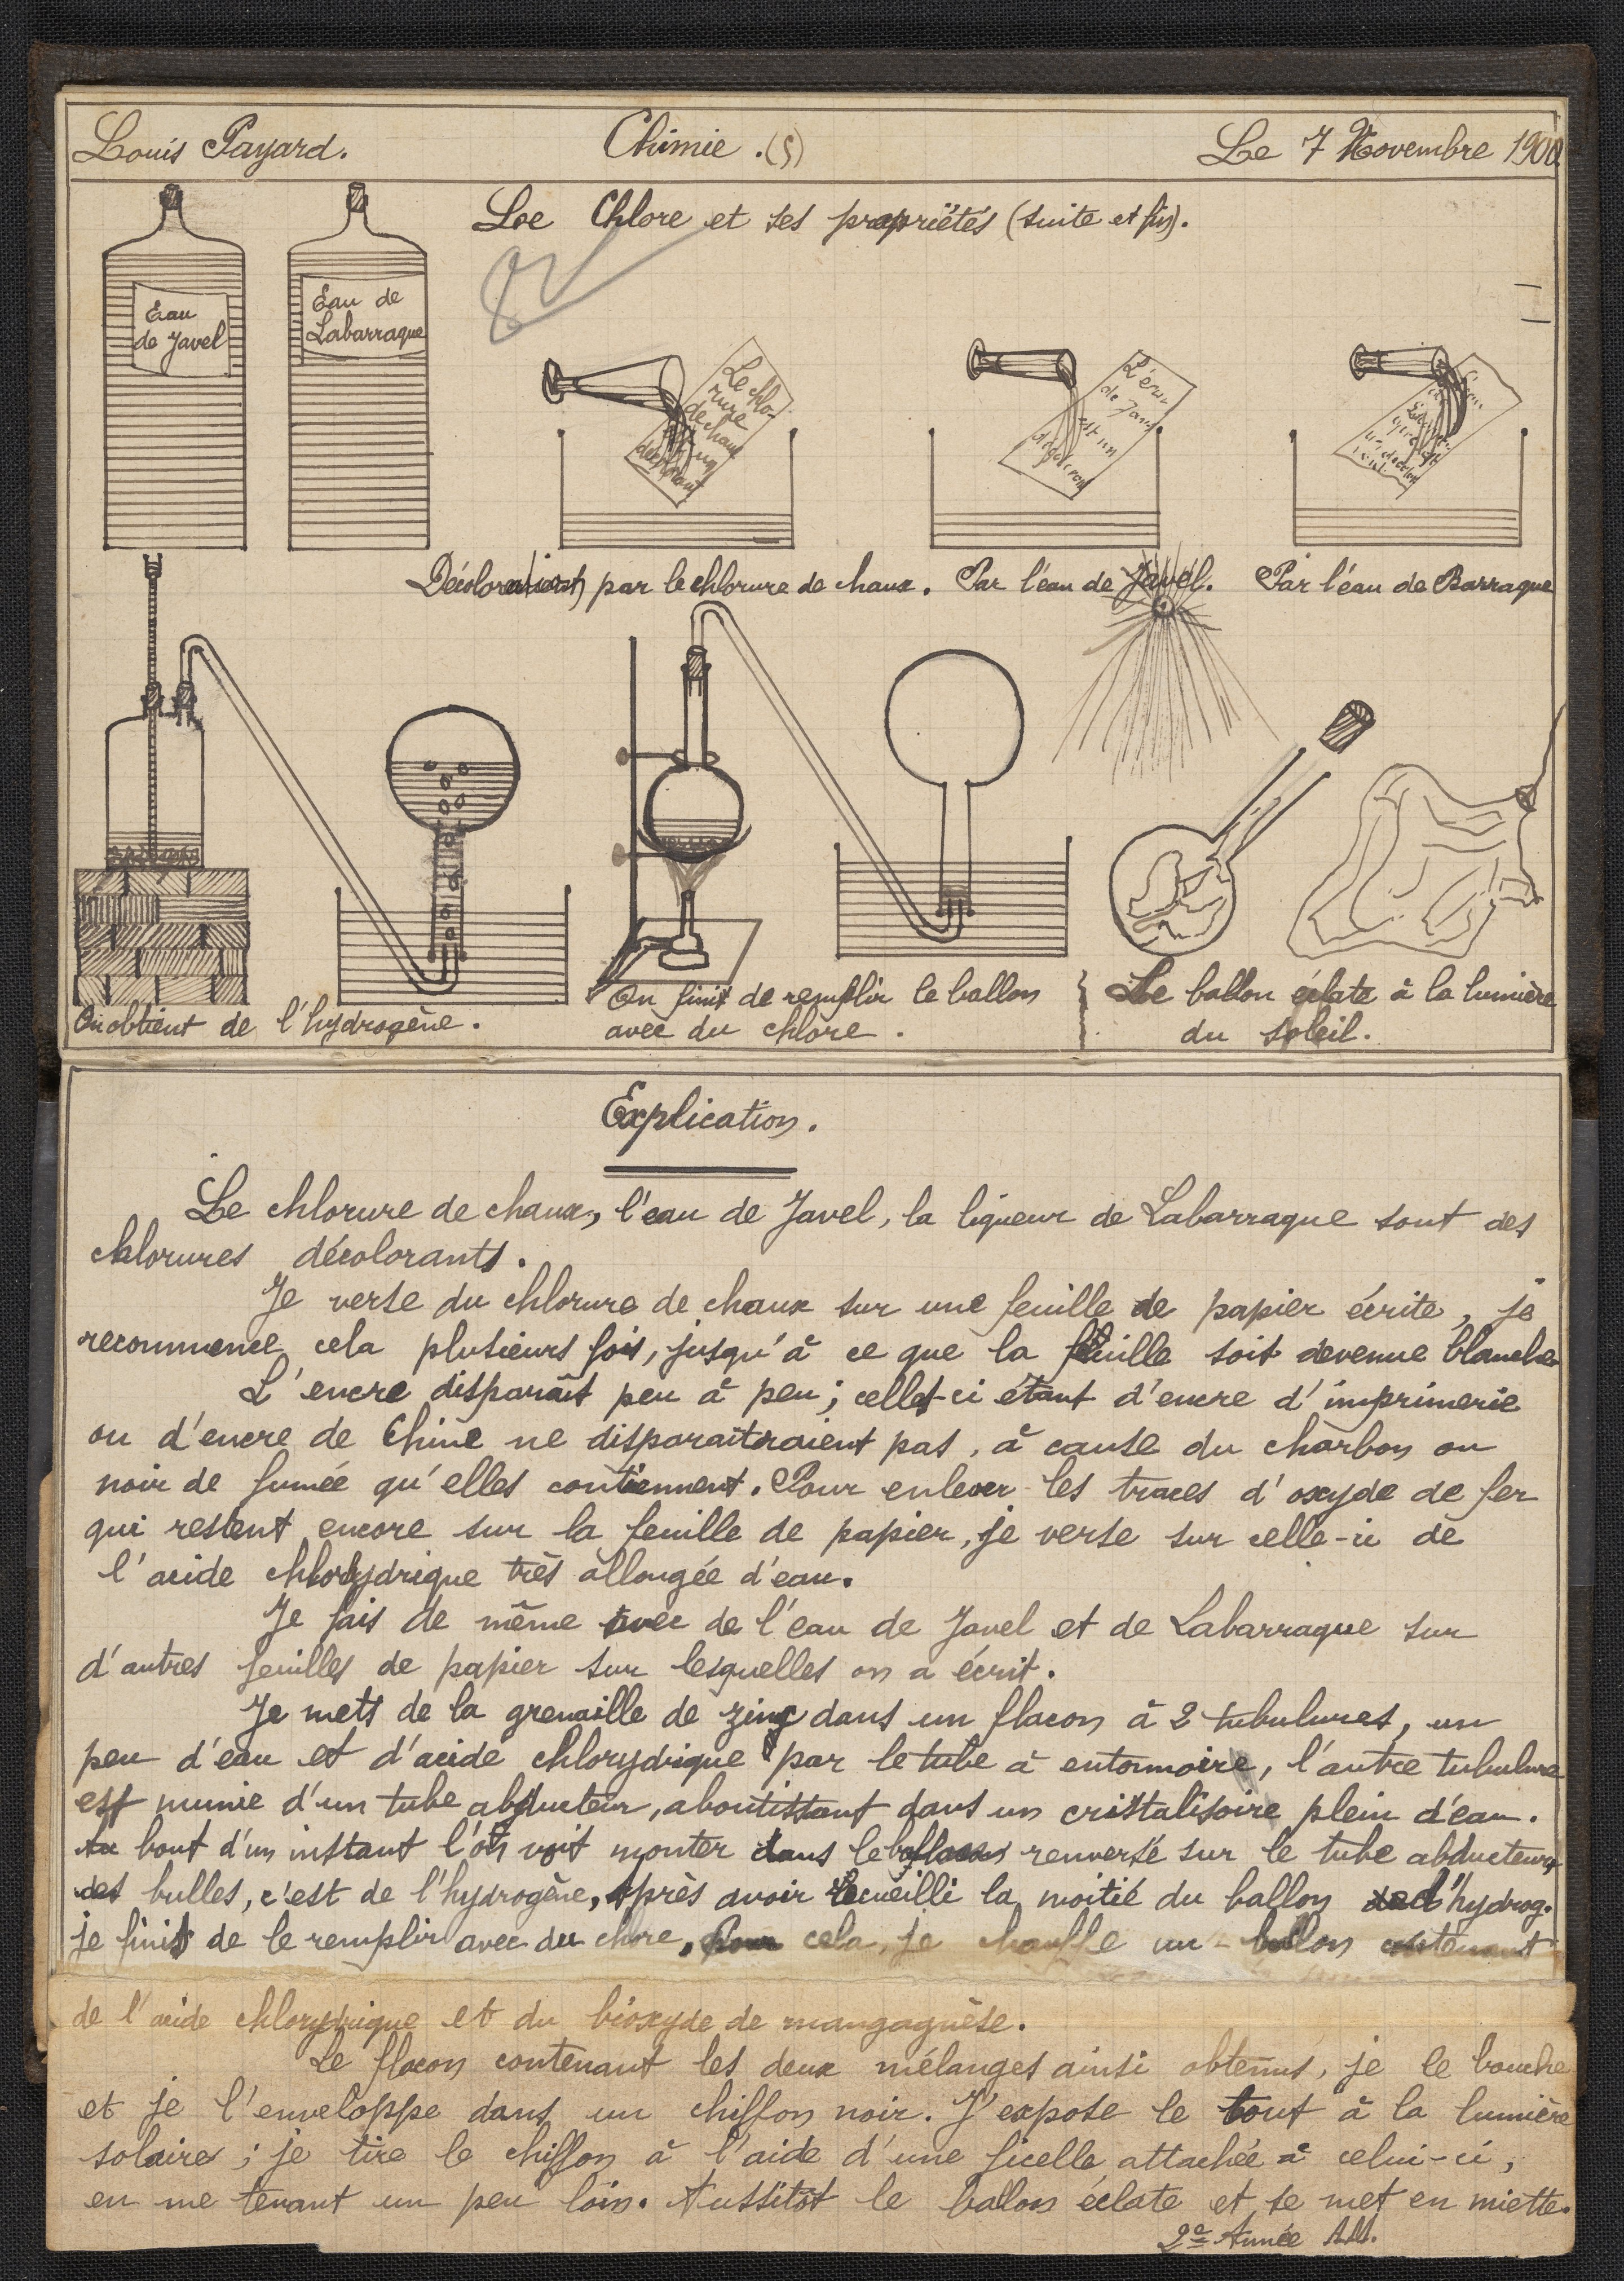 Louis Payard. Chimie .(5) Le 7 Novembre 1900
Le Chlore et ses propriétés (suite et fin).
Eau
de Javel
Eau de
Labarraque
Le chlo-
rure
de chaux
est un
décolorant
L'eau
de Jav
est un
décoloran
Décoloration par le chlorure de chaux. Par l'éau de Javel. Par l'éau de Barraque
On obtient de l'hydrogène.
On finit de remplir le ballon
avec du chlore .
Le ballon éclate à la lumière
du soleil.
Explication.
Le chlorure de chaux, l'eau de Javel, la liqueur de Labarraque sont des
chlorures décolorants.
Je verse du chlorure de chaux sur une feuille de papier écrite, je
recommence cela plusieurs fois, jusqu'à ce que la feuille soit devenue blanche
L'encre disparaît peu à peu; celles-ci étant d'encre d'imprimerie
ou d'encre de Chine ne disparaîtraient pas, à cause du charbon ou
noir de fumée qu'elles contiennent. Pour enlever les traces d'oxyde de fer
qui restent encore sur la feuille de papier, je verse sur celle-ci de
l'acide chlorydrique très allongée d'eau.
Je fais de même avec de l'eau de Javel et de Labarraque sur
d'autres feuilles de papier sur lesquelles on a écrit.
Je mets de la grenaille de zing dans un flacon à 2 tubulures, un
peu d'eau et d'acide chlorydrique par le tube à entonnoire, l'autre tubulure
est munie d'un tube abducteur, aboutissant dans un cristalisoire plein d'eau.
Au bout d'un instant l'on voit monter dans le ballon renversé sur le tube abducteur,
des bulles, c'est de l'hydrogène, Après avoir recueilli la moitié du ballon d'hydrog.
je finis de le remplir avec du chore, Pour cela, je chauffe un ballon contenant
de l'acide chlorydrique et du bioxyde de mangagnèse.
Le flacon contenant les deux mélanges ainsi obtenus, je le bouche
et je l'enveloppe dans un chiffon noir. J'expose le tout à la lumière
solaire; je tire le chiffon à l'aide d'une ficelle attachée à celui-ci,
en me tenant un peu loin. Aussitôt le ballon éclate et se met en miette.
2e Année